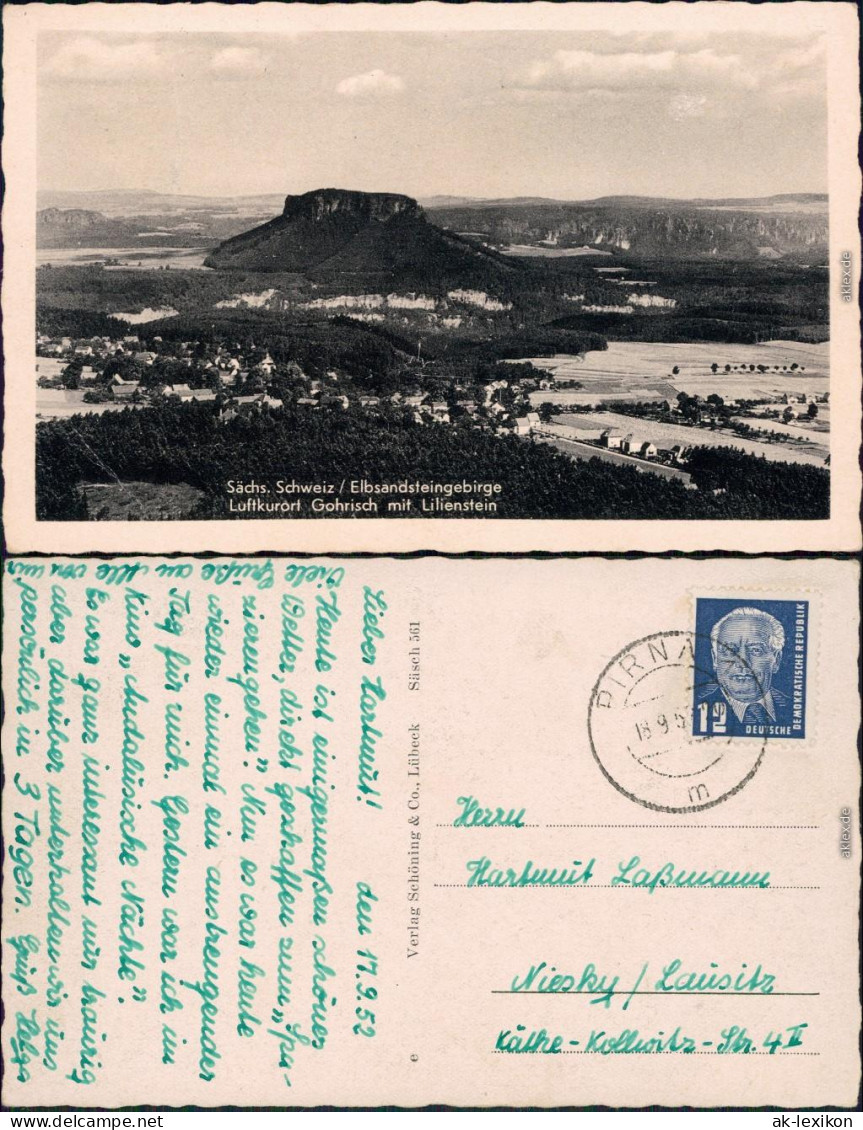 Sächs. Schweiz / Elbsandsteingebirge
Luftkurort Gohrisch mit Lilienstein
akIex.de
Lieber Hartmut! den 17.9.52
Heute ist einigermaßen schönes
Wetter, direkt geschaffen zum „Spa-
zierengehen". Nun es war heute
wieder einmal ein anstrengender
Tag für mich. Gestern war ich im
Kino „Andalusische Nächte"
Es war ganz interessant nur traurig
aber darüber unterhalten wir uns
persönlich in 3 Tagen. Gruß Helga
Viele Grüße an Alle von mir
Verlag Schöning & Co., Lübeck Säsch 561
e
PIRNA
18.9.5
m
12
DEUTSCHE
DEMOKRATISCHE REPUBLIK
Herrn
Hartmut Laßmann
Niesky / Lausitz
Käthe-Kollwitz-Str. 4 II
akIex.de
ak-lexikon